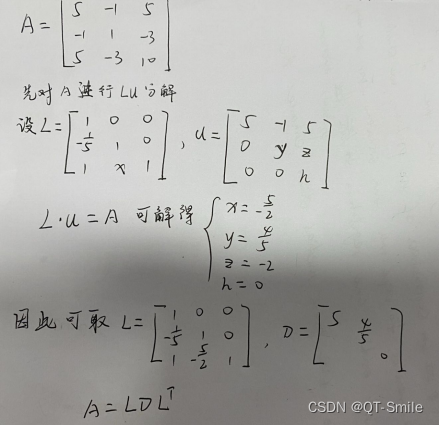 A = [ 5 -1 5
-1 1 -3
5 -3 10 ]
先对 A 进行 LU 分解
设 L = [ 1 0 0
-1/5 1 0
1 x 1 ] , U = [ 5 -1 5
0 y z
0 0 h ]
L·U = A 可解得 { x = -5/2
y = 4/5
z = -2
h = 0
因此可取 L = [ 1 0 0
-1/5 1 0
1 -5/2 1 ] , D = [ 5
4/5
0 ]
A = LDL^T
CSDN @QT-Smile